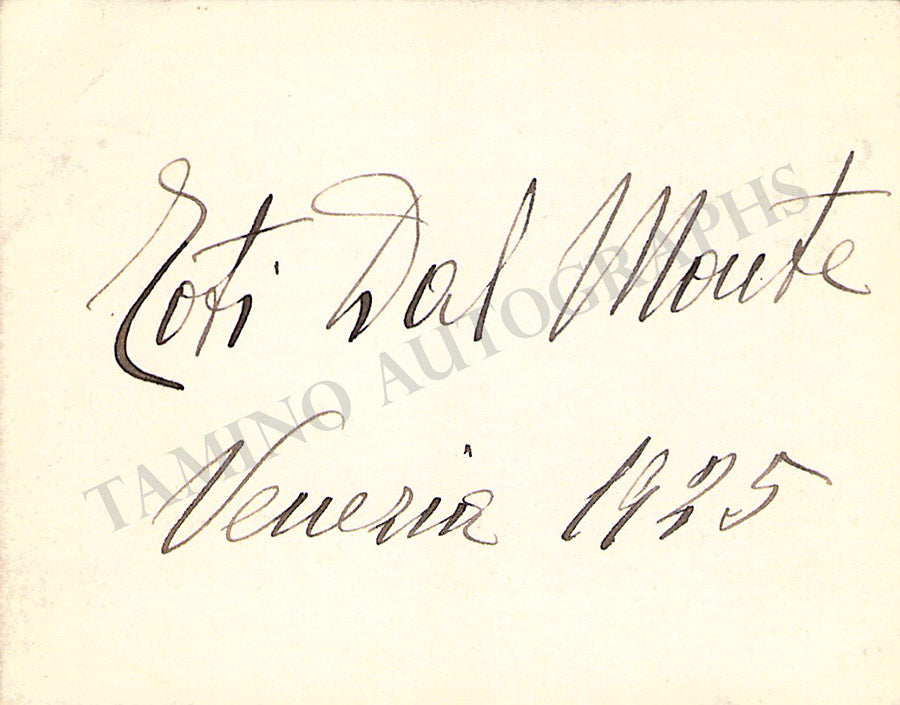 Toti Dal Monte
Venezia 1925
TAMINO AUTOGRAPHS